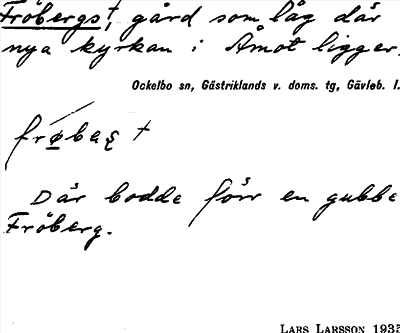 Fröbergs†, gård som låg där
nya kyrkan i Åmot ligger.
Ockelbo sn, Gästriklands v. doms. tg, Gävleb. l.
Där bodde förr en gubbe
Fröberg.
LARS LARSSON 1935